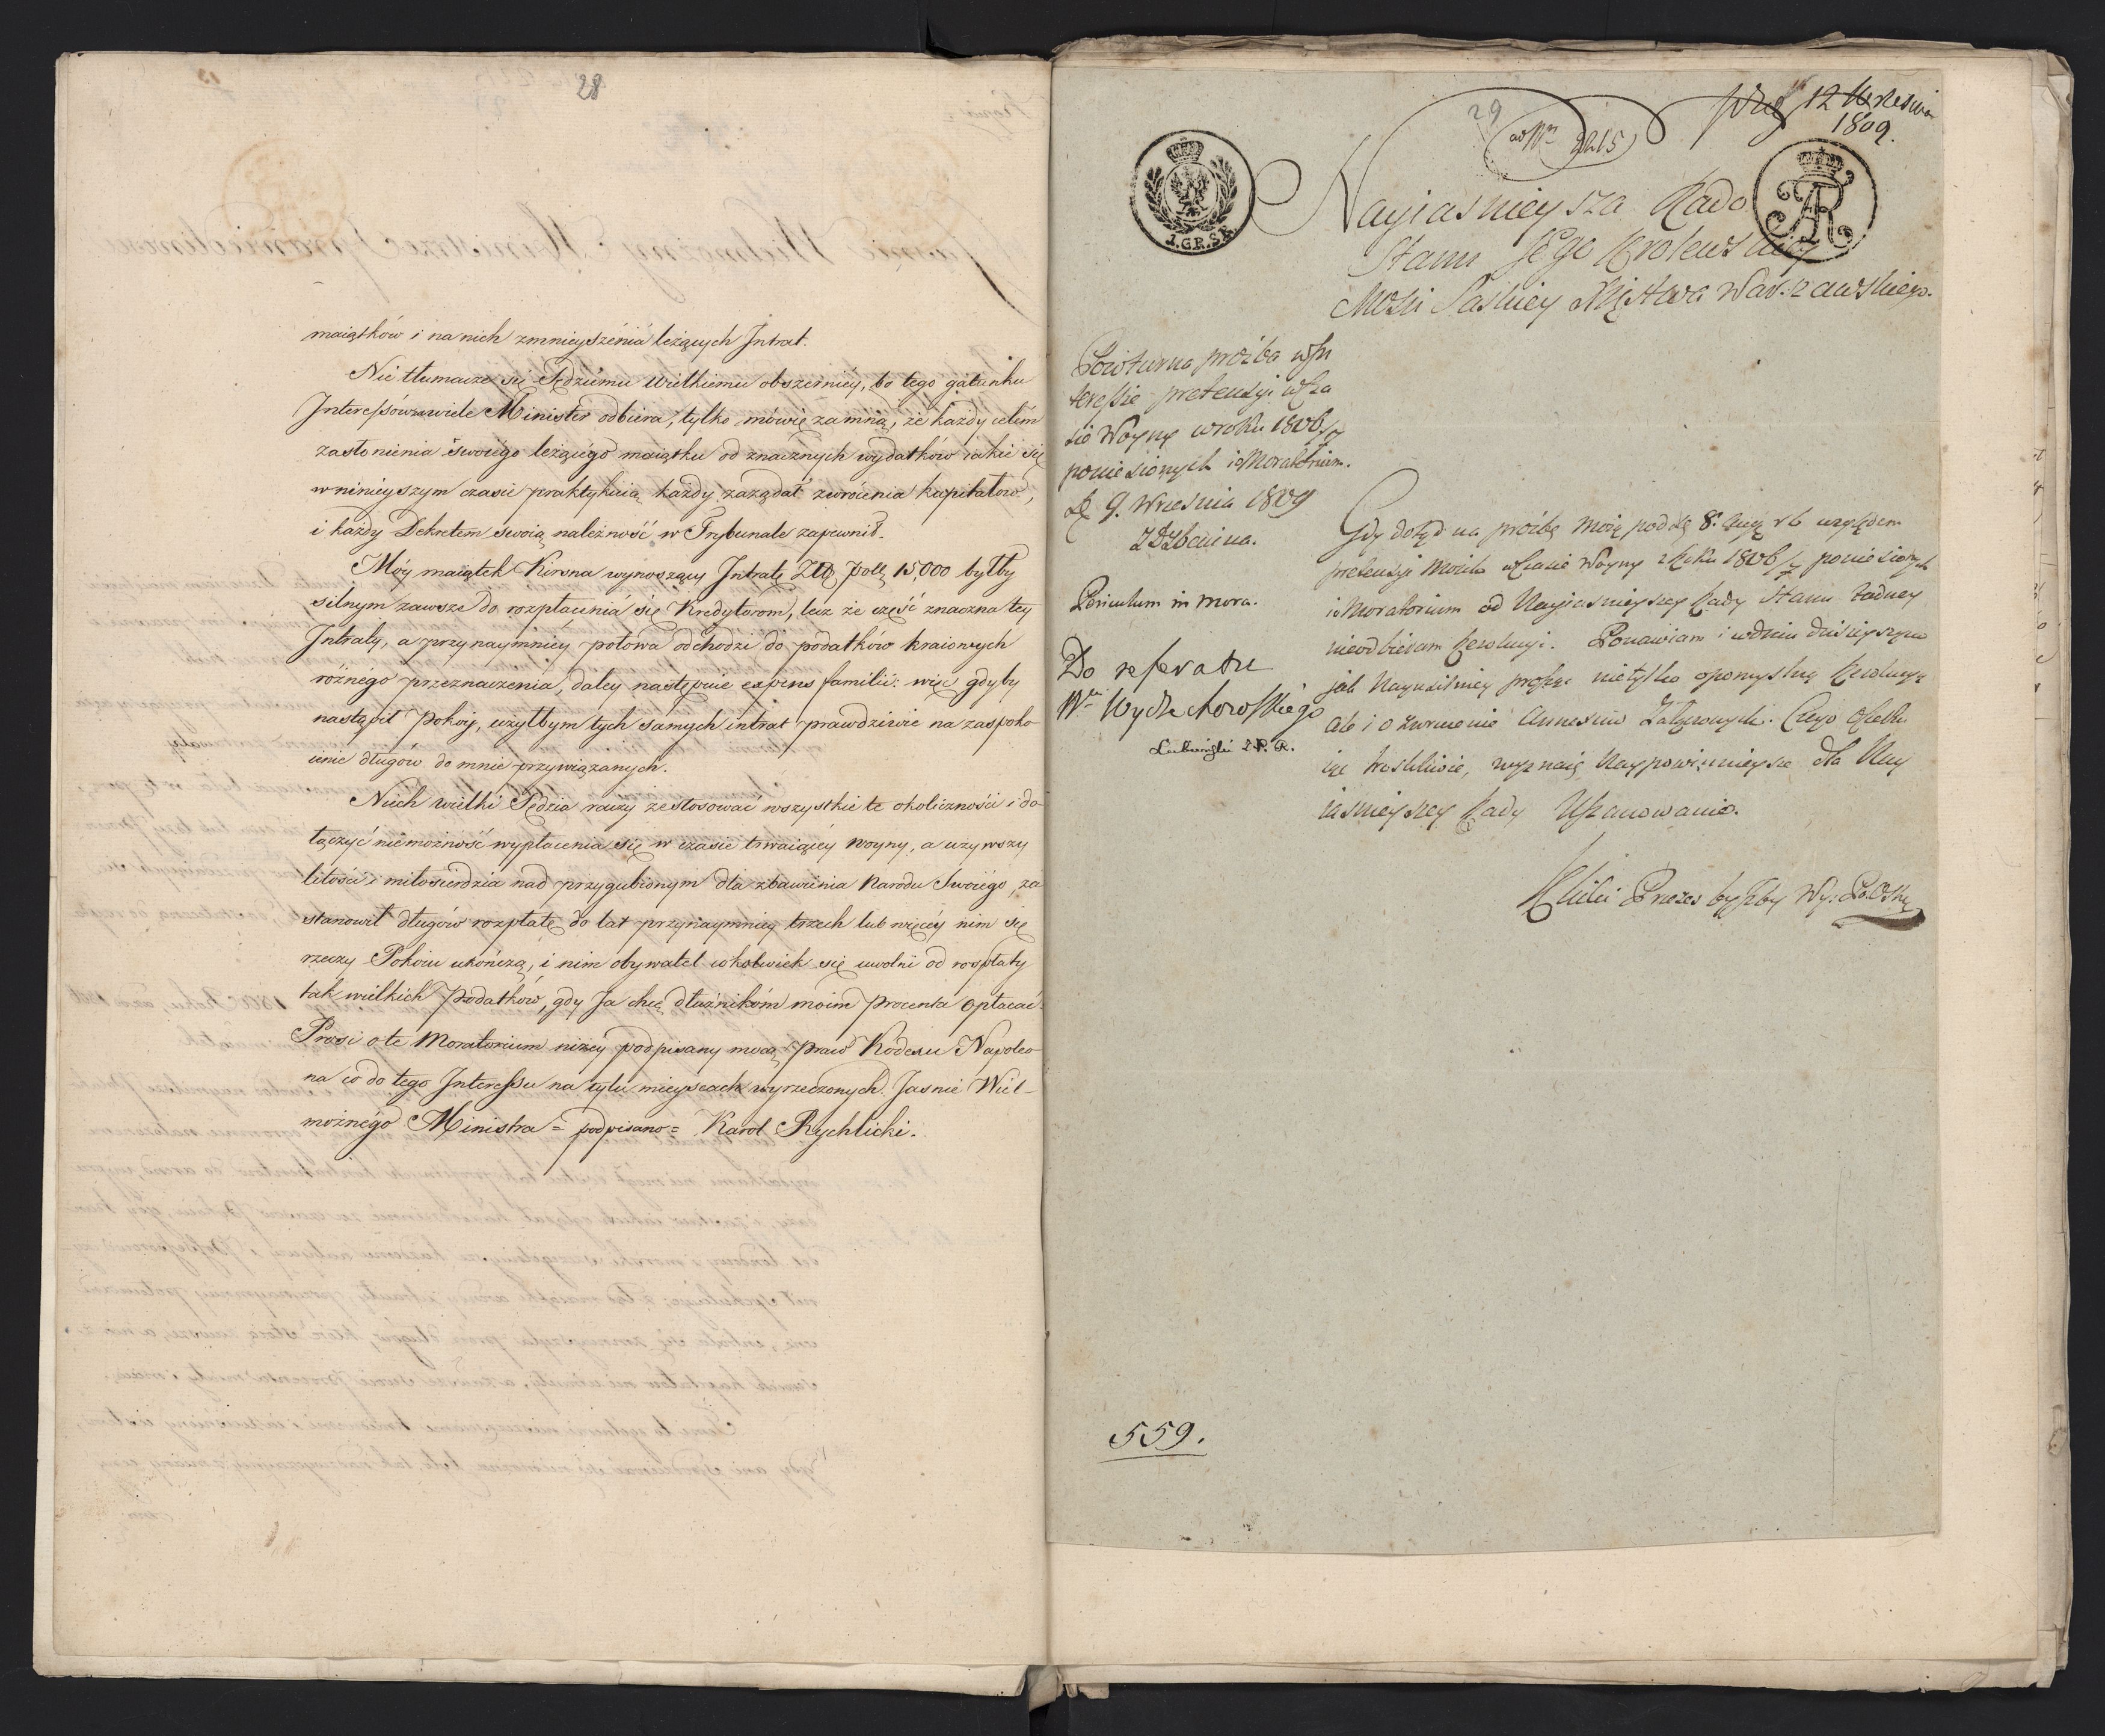 28
maiątków i na nich zmnieyszénia leżących Intrat.
Nie tłumaczę się Sędziému Wielkiemu obszerniéy, bo tego gatunku
Interessów wiele Minister odbiera, tylko mówię za mną, że każdy celém
zasłonienia swoiégo leżącégo maiątku od znacznych wydatków iakie się
w ninieyszym czasie praktykuią każdy zażądał zwrócenia kapitałów,
i każdy Dekretem swoią należność w Trybunale zapewnił.
Móy maiątek Kirsna wynoszący Intratę Złł. poll. 15,000 byłby
silnym zawsze do rozpłacenia się Kredytorom, lecz że część znaczna tey
Intraty, a przynaymniéy połowa odchodzi do podatków kraiowych
różnégo przeznaczenia, daley następuie expens familii: więc gdyby
nastąpił Pokóy, użyłbym tych samych intrat prawdziwie na zaspoko-
ienie długów do mnie przywiązanych.
Niech wielki Sędzia raczy zestosować wszystkie te okoliczności i do-
łączyć niémożność wypłacenia się w czasie trwaiącéy woyny, a używszy
litości i miłosierdzia nad przygubionym dla zbawienia Narodu Swoiégo, za-
stanowił długów rozpłatę do lat przynaymniey trzech lub więcéy nim się
rzeczy Pokoiu ukończą, i nim obywatel cokolwiek się uwolni od rospłaty
tak wielkich Podatków, gdy Ja chcę dłużnikóm moim Procenta opłacać.
Prosi o te Moratorium niżéy podpisany mocą praw Kodexu Napoleo-
na co do tego Interessu na tylu mieyscach wyrzeczonych. Jaśnie Wiel-
możnégo Ministra = podpisano = Karol Rychlicki.
29
ad Nm 2215
prez 12 Września
1809.
1.GR.SR.
Nayiasnieysza Rado
Stanu Jego Krolewskiey
Mości Saskiey Xięstwa Warszawskiego.
Powturna prożba w In
teressie pretensyi w cza
sie Woyny w roku 1806/7
poniesionych i o Moratorium.
D. 9. Wrzesnia 1809
Z Dzbanina.
Periculum in mora.
Do referatu
Wo Wychechowskiego
Łubieński
Gdy dotąd na prożbę moią pod d. 8. względem
pretensyi moich w czasie Woyny z Roku 1806/7 poniesionych
i o Moratorium od Nayiasnieyszey Rady Stanu żadney
nieodbieram Rezolucyi. Ponawiam i w dniu dzisieyszym
jak nayusilniey prosząc nietylko o pomyslną Rezolucyą
ale i o zwrucenie Annexów Załączonych. Czego Czeka
iąc troskliwie, wyznaię Naypowinnieysze dla Nay
iasnieyszey Rady Uszanowanie.
559.